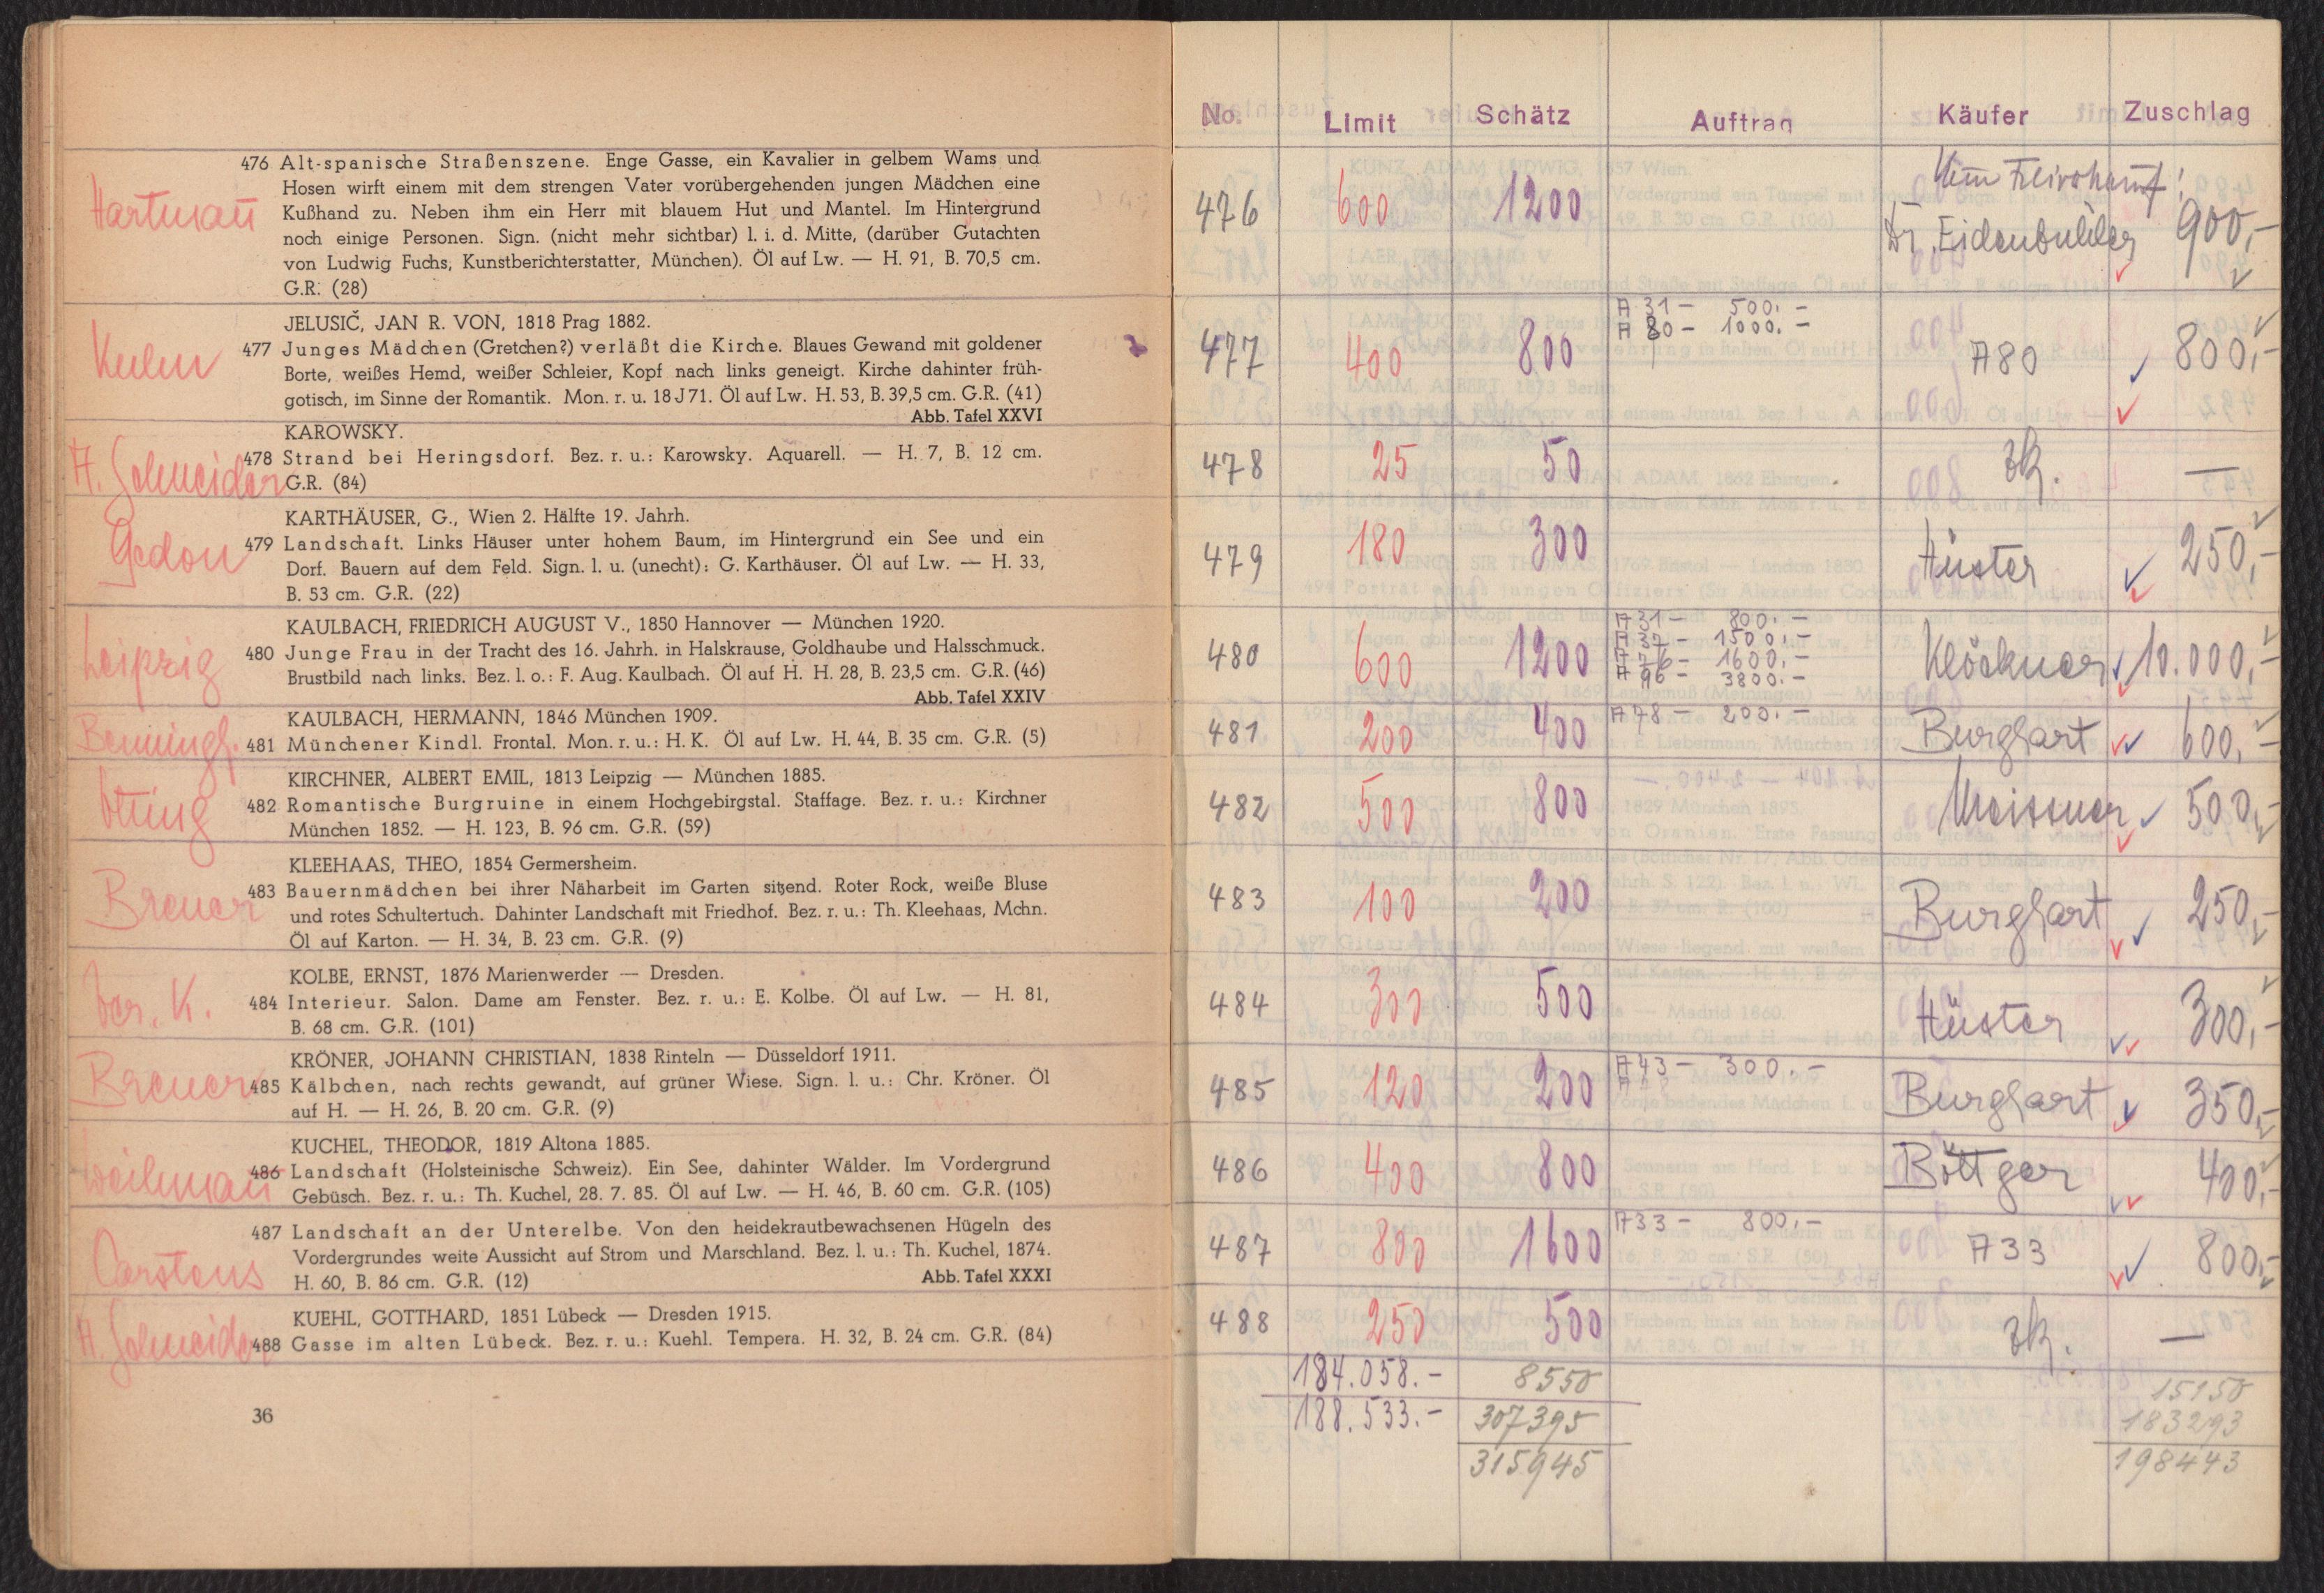 Hartmañ
476 Alt-spanische Straßenszene. Enge Gasse, ein Kavalier in gelbem Wams und
Hosen wirft einem mit dem strengen Vater vorübergehenden jungen Mädchen eine
Kußhand zu. Neben ihm ein Herr mit blauem Hut und Mantel. Im Hintergrund
noch einige Personen. Sign. (nicht mehr sichtbar) l. i. d. Mitte, (darüber Gutachten
von Ludwig Fuchs, Kunstberichterstatter, München). Öl auf Lw. — H. 91, B. 70,5 cm.
G.R. (28)
JELUSIČ, JAN R. VON, 1818 Prag 1882.
477 Junges Mädchen (Gretchen?) verläßt die Kirche. Blaues Gewand mit goldener
Borte, weißes Hemd, weißer Schleier, Kopf nach links geneigt. Kirche dahinter früh-
gotisch, im Sinne der Romantik. Mon. r. u. 18 J 71. Öl auf Lw. H. 53, B. 39,5 cm. G.R. (41)
Abb. Tafel XXVI
KAROWSKY.
A. Schneider
478 Strand bei Heringsdorf. Bez. r. u.: Karowsky. Aquarell. — H. 7, B. 12 cm.
G.R. (84)
KARTHÄUSER, G., Wien 2. Hälfte 19. Jahrh.
Gedon
479 Landschaft. Links Häuser unter hohem Baum, im Hintergrund ein See und ein
Dorf. Bauern auf dem Feld. Sign. l. u. (unecht): G. Karthäuser. Öl auf Lw. — H. 33,
B. 53 cm. G.R. (22)
KAULBACH, FRIEDRICH AUGUST V., 1850 Hannover — München 1920.
Leipzig
480 Junge Frau in der Tracht des 16. Jahrh. in Halskrause, Goldhaube und Halsschmuck.
Brustbild nach links. Bez. l. o.: F. Aug. Kaulbach. Öl auf H. H. 28, B. 23,5 cm. G.R. (46)
Abb. Tafel XXIV
KAULBACH, HERMANN, 1846 München 1909.
481 Münchener Kindl. Frontal. Mon. r. u.: H. K. Öl auf Lw. H. 44, B. 35 cm. G.R. (5)
KIRCHNER, ALBERT EMIL, 1813 Leipzig — München 1885.
482 Romantische Burgruine in einem Hochgebirgstal. Staffage. Bez. r. u.: Kirchner
München 1852. — H. 123, B. 96 cm. G.R. (59)
KLEEHAAS, THEO, 1854 Germersheim.
Breuer
483 Bauernmädchen bei ihrer Näharbeit im Garten sitzend. Roter Rock, weiße Bluse
und rotes Schultertuch. Dahinter Landschaft mit Friedhof. Bez. r. u.: Th. Kleehaas, Mchn.
Öl auf Karton. — H. 34, B. 23 cm. G.R. (9)
KOLBE, ERNST, 1876 Marienwerder — Dresden.
484 Interieur. Salon. Dame am Fenster. Bez. r. u.: E. Kolbe. Öl auf Lw. — H. 81,
B. 68 cm. G.R. (101)
KRÖNER, JOHANN CHRISTIAN, 1838 Rinteln — Düsseldorf 1911.
Breuer
485 Kälbchen, nach rechts gewandt, auf grüner Wiese. Sign. l. u.: Chr. Kröner. Öl
auf H. — H. 26, B. 20 cm. G.R. (9)
KUCHEL, THEODOR, 1819 Altona 1885.
Weilmañ
486 Landschaft (Holsteinische Schweiz). Ein See, dahinter Wälder. Im Vordergrund
Gebüsch. Bez. r. u.: Th. Kuchel, 28. 7. 85. Öl auf Lw. — H. 46, B. 60 cm. G.R. (105)
487 Landschaft an der Unterelbe. Von den heidekrautbewachsenen Hügeln des
Vordergrundes weite Aussicht auf Strom und Marschland. Bez. l. u.: Th. Kuchel, 1874.
Carstens
H. 60, B. 86 cm. G.R. (12) Abb. Tafel XXXI
KUEHL, GOTTHARD, 1851 Lübeck — Dresden 1915.
A. Schneider
488 Gasse im alten Lübeck. Bez. r. u.: Kuehl. Tempera. H. 32, B. 24 cm. G.R. (84)
36
No. Limit Schätz Auftrag Käufer Zuschlag
476 600 1200 900,-
A 31 - 500.-
A 80 - 1000.-
477 400 800 A80 800,-
478 25 50 zk. —
479 180 300 Hüster 250,-
A 31 - 800.-
A 37 - 1500.-
A 76 - 1600.-
A 96 - 3800.-
480 600 1200 Klöckner 10.000,-
A 78 - 200.-
481 200 400 Burghart 600,-
482 500 800 Meissner 500,-
483 100 200 Burghart 250,-
484 300 500 Hüster 300,-
A 43 - 300.-
485 120 200 Burghart 350,-
486 400 800 Böttger 400,-
A 33 - 800,-
487 800 1600 A33 800,-
488 250 500 zk. —
184.058.- 8550 15150
188.533.- 307395 183293
315945 198443